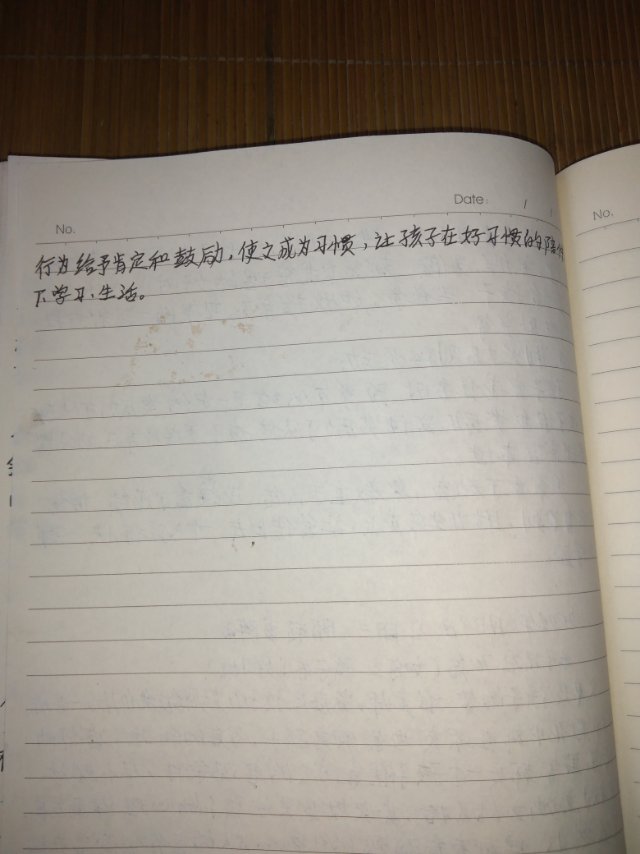 No.
Date / /
No.
行为给予肯定和鼓励,使之成为习惯,让孩子在好习惯的陪伴
下学习、生活。